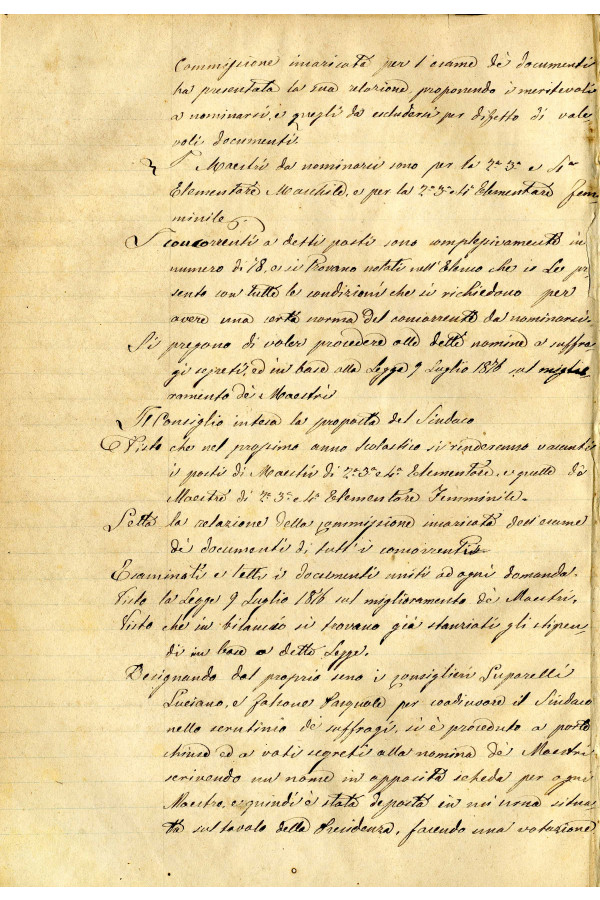 Commissione incaricata per l'esame de documenti
ha presentata la sua relazione, proponendo i meritevoli
a nominarsi, e quegli da escludersi per difetto di vale-
voli documenti.
I Maestri da nominarsi sono per la 2ª 3ª e 4ª
Elementare Maschile, e per la 2ª 3ª e 4ª Elementare fem-
minile.
I concorrenti a detti posti sono complessivamente in
numero di 18, e si trovano notati nell'Elenco che io Lor pre
sento con tutte le condizioni che si richiedono per
avere una certa norma del concorrente da nominarsi.
Si pregano di voler procedere alle dette nomine a suffra-
gi segreti, ed in base alla Legge 9 Luglio 1876 sul miglio-
ramento de Maestri
Il Consiglio intesa la proposta del Sindaco
Visto che nel prossimo anno scolastico si renderanno vacanti
i posti di Maestri di 2ª 3ª e 4ª Elementare, e quelle di
Maestre di 2ª 3ª e 4ª Elementare Femminile.
Letta la relazione della Commissione incaricata dell'esame
de documenti di tutt'i concorrenti
Esaminati e letti i documenti uniti ad ogni domanda.
Visto la Legge 9 Luglio 1876 sul miglioramento de Maestri.
Visto che in bilancio si trovano già stanziati gli stipen-
di in base a detta Legge.
Designando dal proprio seno i consiglieri Luparelli
Luciano, e Falcone Pasquale per coadiuvare il Sindaco
nello scrutinio de suffragi, si è proceduto a porte
chiuse ed a voti segreti alla nomina de Maestri
scrivendo un nome in apposita scheda per ogni
Maestro, e quindi è stata deposta in un urna situa-
ta sul tavolo della Presidenza, facendo una votazione